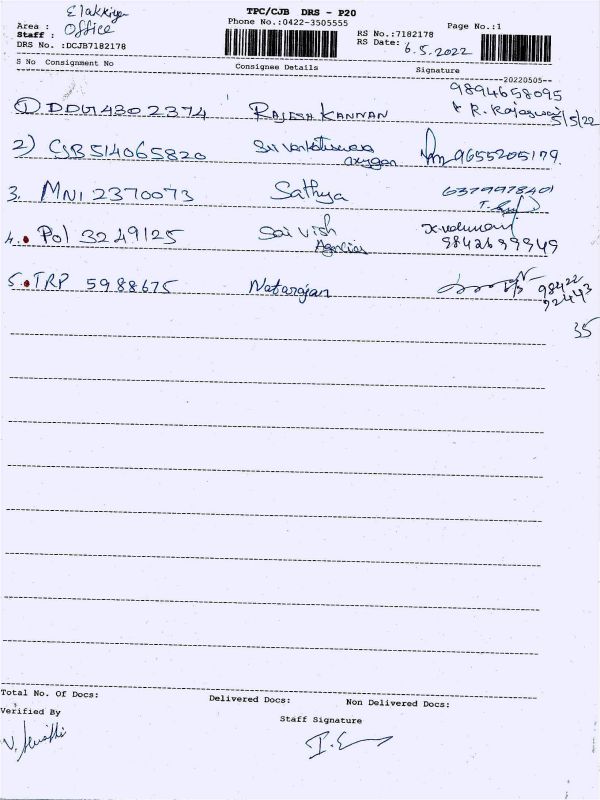 Elakkiya
TPC/CJB DRS - P20
Area : Office
Phone No.:0422-3505555
Page No.:1
Staff :
RS No.:7182178
DRS No. :DCJB7182178
RS Date: 6.5.2022
S No Consignment No Consignee Details Signature
20220505
9894658095
① DDG14302374 RAJESH KANNAN
5/5/22
2) CJB514065820 Sri Venkateswara
oxygen 9655205179
3. MNI 2370073 Sathya 6379978401
4. Pol 3249125 Sai Vish
Agencies 9842699949
5. TRP 5988675 Natarajan 98422
92443
35
Total No. Of Docs: Delivered Docs: Non Delivered Docs:
Verified By
Staff Signature